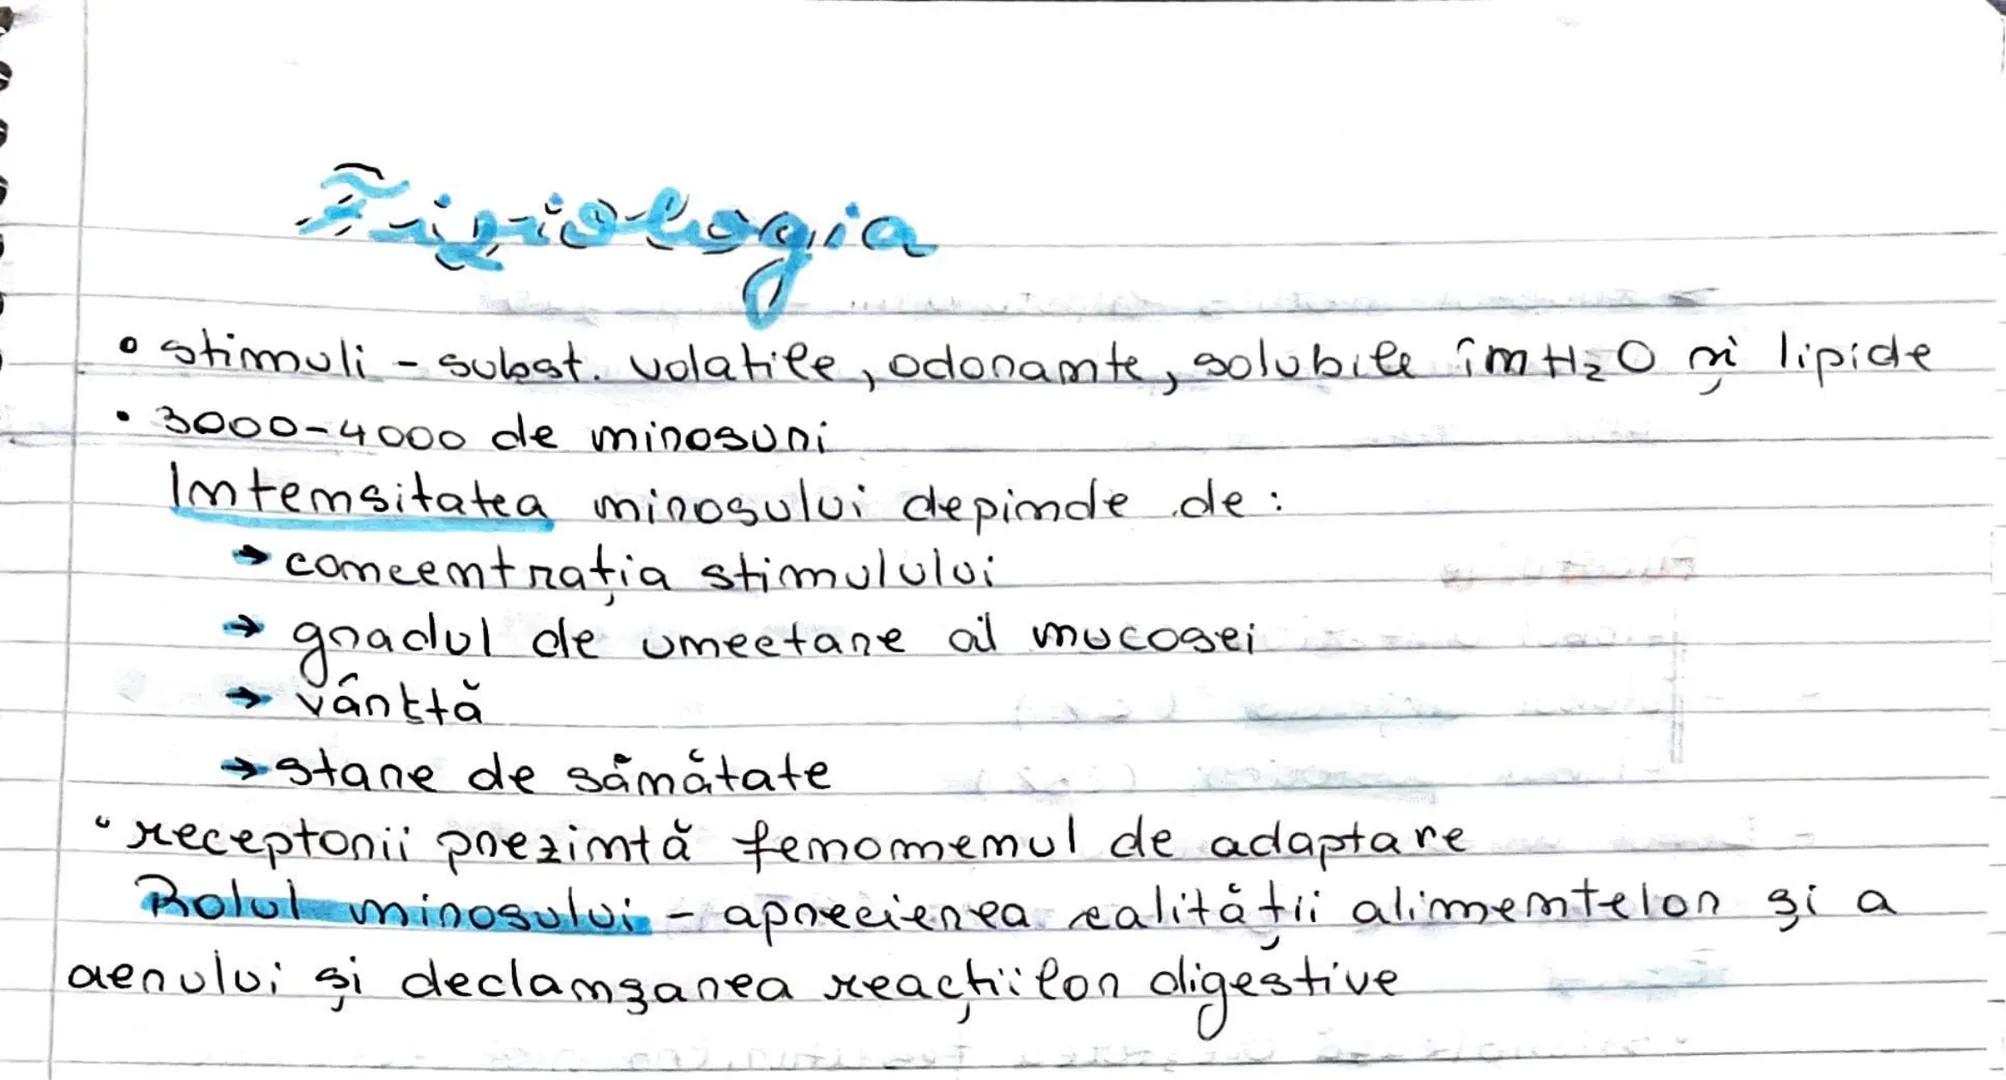 Fiziologia
• stimuli - subst. volatile, odorante, solubile în H₂O și lipide
• 3000-4000 de mirosuri
Intensitatea mirosului depinde de:
→ concentrația stimulului
→ gradul de umectare al mucosei
→ vârstă
→ stare de sănătate
• receptorii prezintă fenomenul de adaptare
Rolul mirosului - aprecierea calității alimentelor și a
aerului și declanșarea reacțiilor digestive